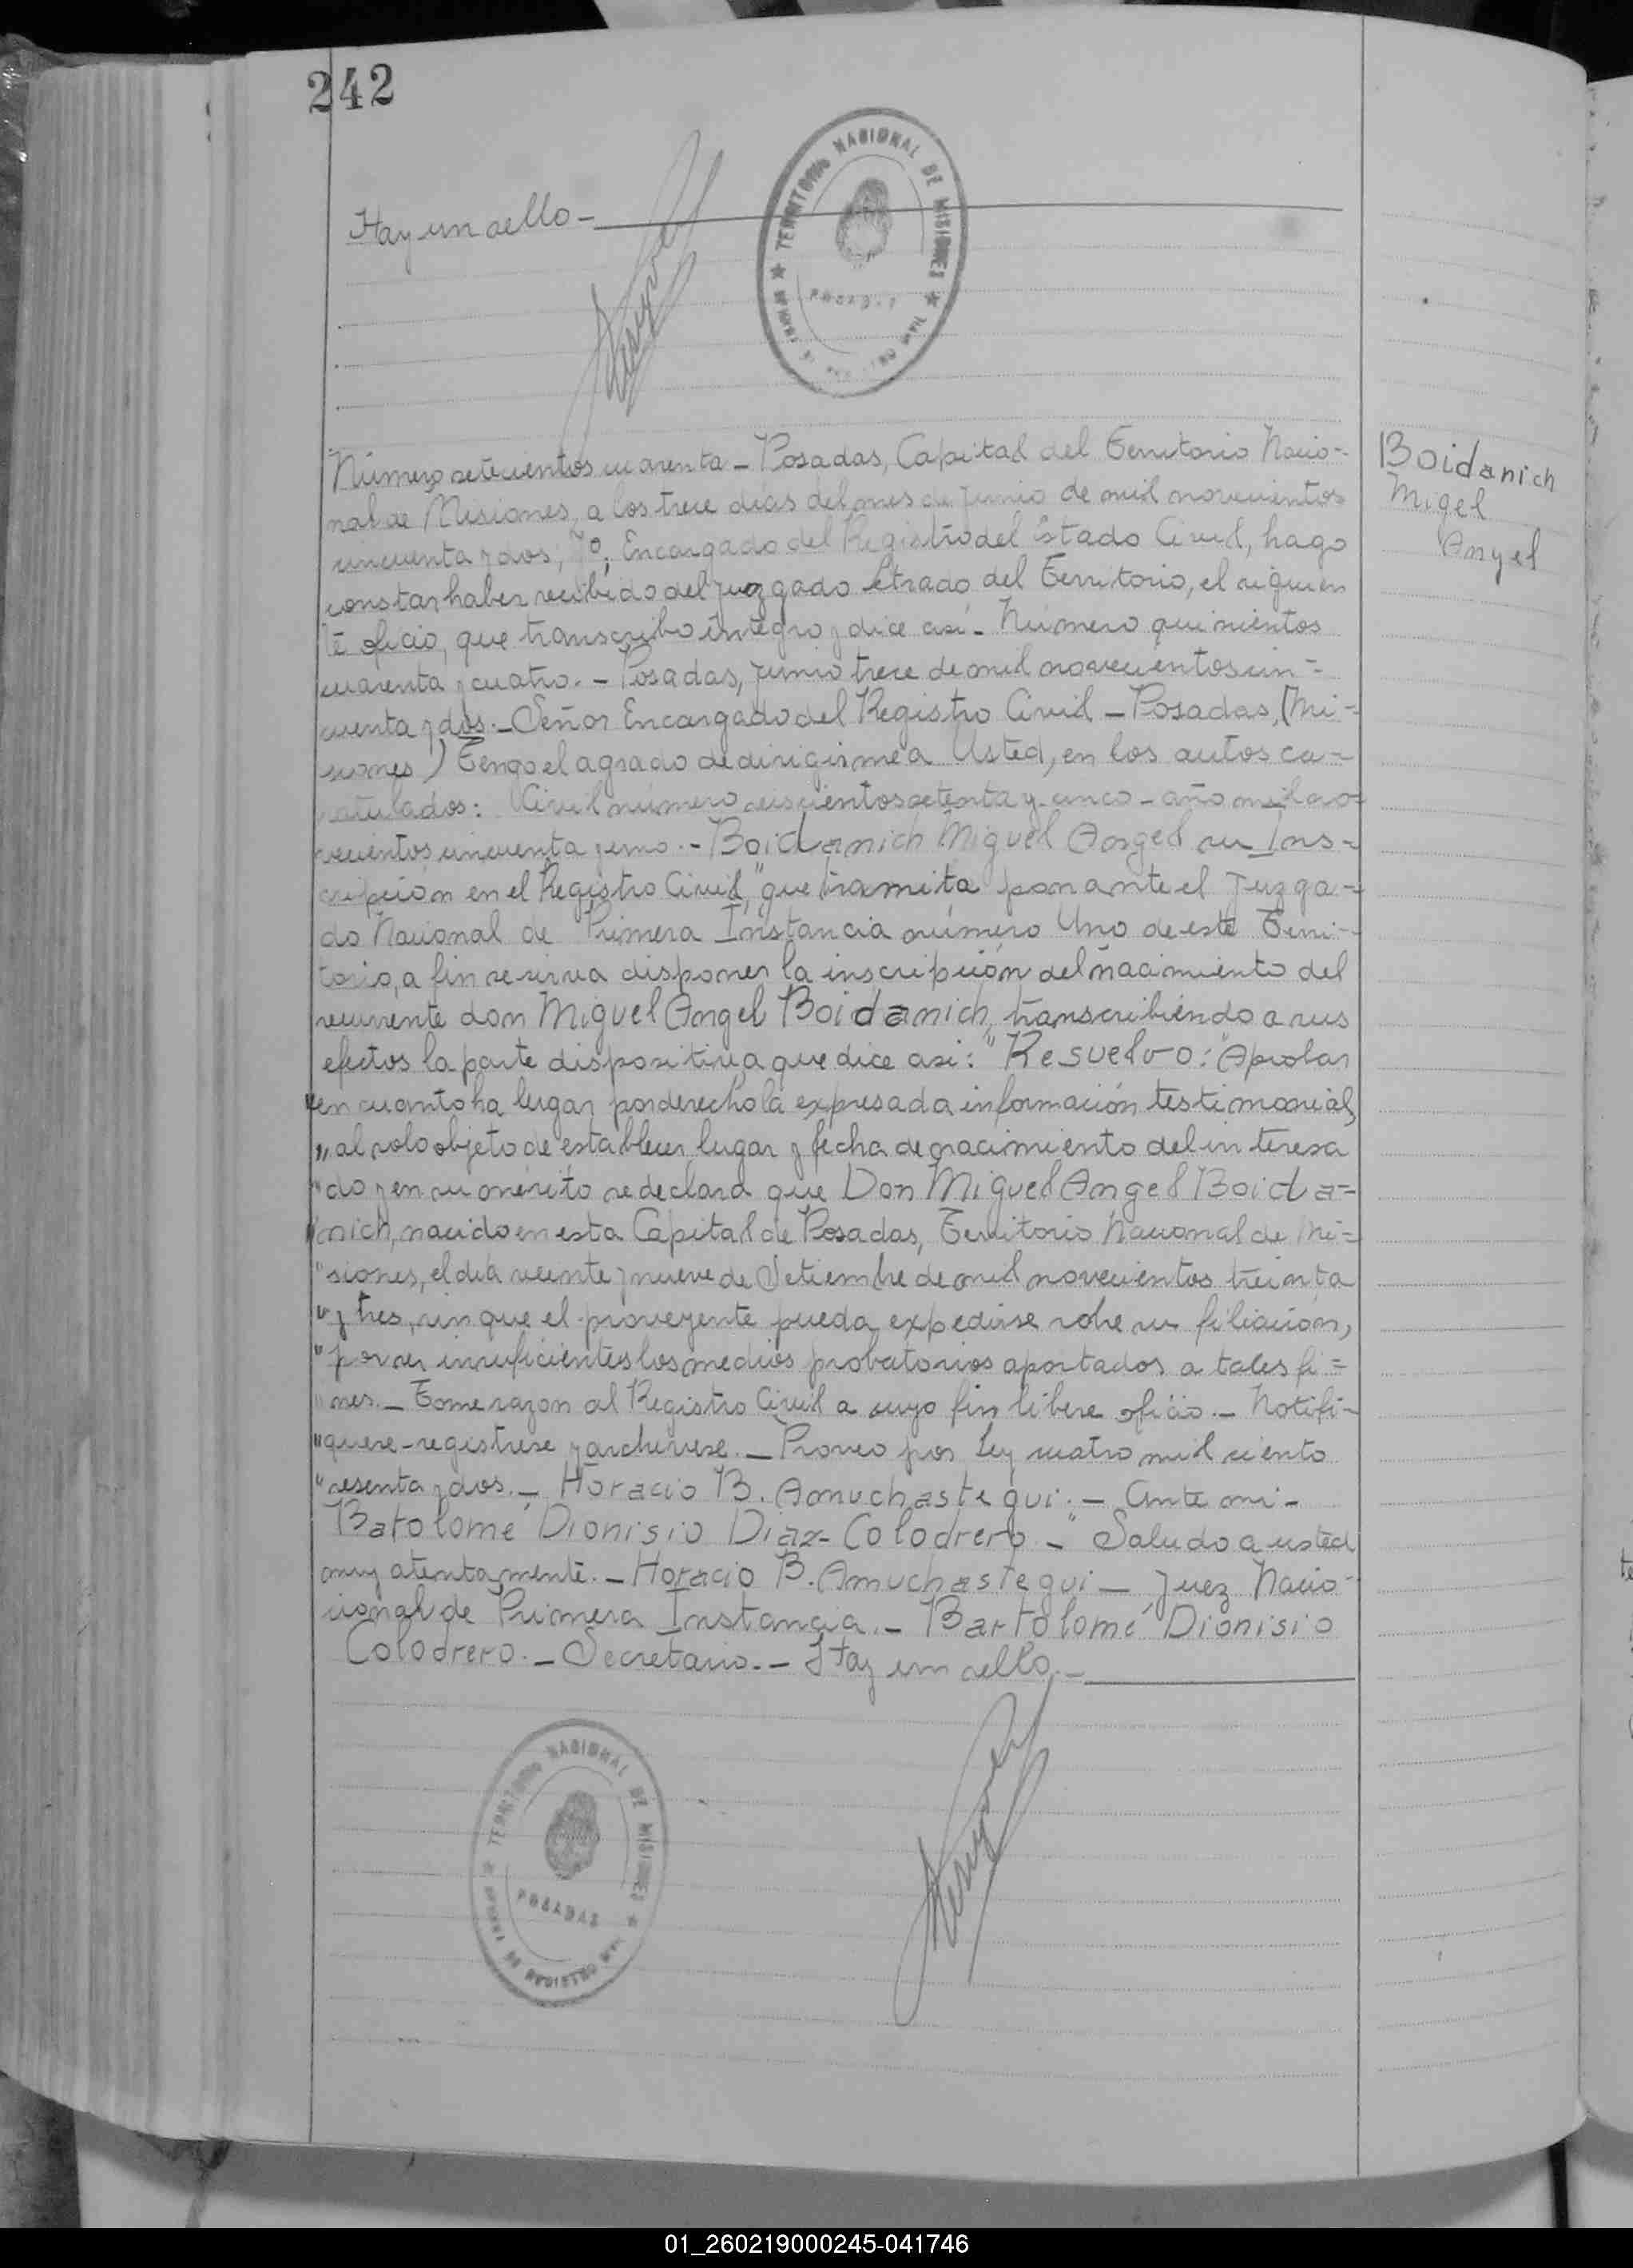 242
Hay un sello -
TERRITORIO NACIONAL DE MISIONES
POSADAS
Número setecientos cuarenta - Posadas, Capital del Territorio Nacio-
nal de Misiones, a los trece días del mes de junio de mil novecientos
cincuenta y dos, Yo, Encargado del Registro del Estado Civil, hago
constar haber recibido del Juzgado Letrado del Territorio, el siguien
te oficio, que transcribo íntegro y dice así - Número quinientos
cuarenta y cuatro. - Posadas, junio trece de mil novecientos cin-
cuenta y dos. - Señor Encargado del Registro Civil - Posadas, (Mi-
siones) Tengo el agrado de dirigirme a Usted, en los autos ca-
ratulados: Civil número seiscientos setenta y cinco - año mil no-
vecientos cincuenta y uno. - Boidanich Miguel Angel su Ins-
cripción en el Registro Civil," que tramita por ante el Juzga-
do Nacional de Primera Instancia número Uno de este Terri-
torio, a fin se sirva disponer la inscripción del nacimiento del
recurrente don Miguel Angel Boidanich, transcribiendo a sus
efectos la parte dispositiva que dice asi: "Resuelvo: "Aprobar
"en cuanto ha lugar por derecho la expresada información testimonial,
" al solo objeto de establecer lugar y fecha de nacimiento del interesa
"do y en su mérito se declara que Don Miguel Angel Boida-
"nich, nacido en esta Capital de Posadas, Territorio Nacional de Mi-
"siones, el día veinte y nueve de Setiembre de mil novecientos treinta
"y tres, sin que el proveyente pueda expedirse sobre su filiación,
"por ser insuficientes los medios probatorios aportados a tales fi-
"nes. - Tome razon al Registro Civil a cuyo fin líbese oficio. - Notifi-
"quese - regístrese y archívese. - Proveo por Ley cuatro mil ciento
"sesenta y dos. - Horacio B. Amuchastegui. - Ante mi -
Batolomé Dionisio Diaz - Colodrero - " Saludo a usted
muy atentamente. - Horacio B. Amuchastegui - Juez Nacio-
cional de Primera Instancia. - Bartolomé Dionisio
Colodrero. - Secretario. - Hay un sello. -
Boidanich
Migel
Angel
TERRITORIO NACIONAL DE MISIONES
POSADAS
01_260219000245-041746